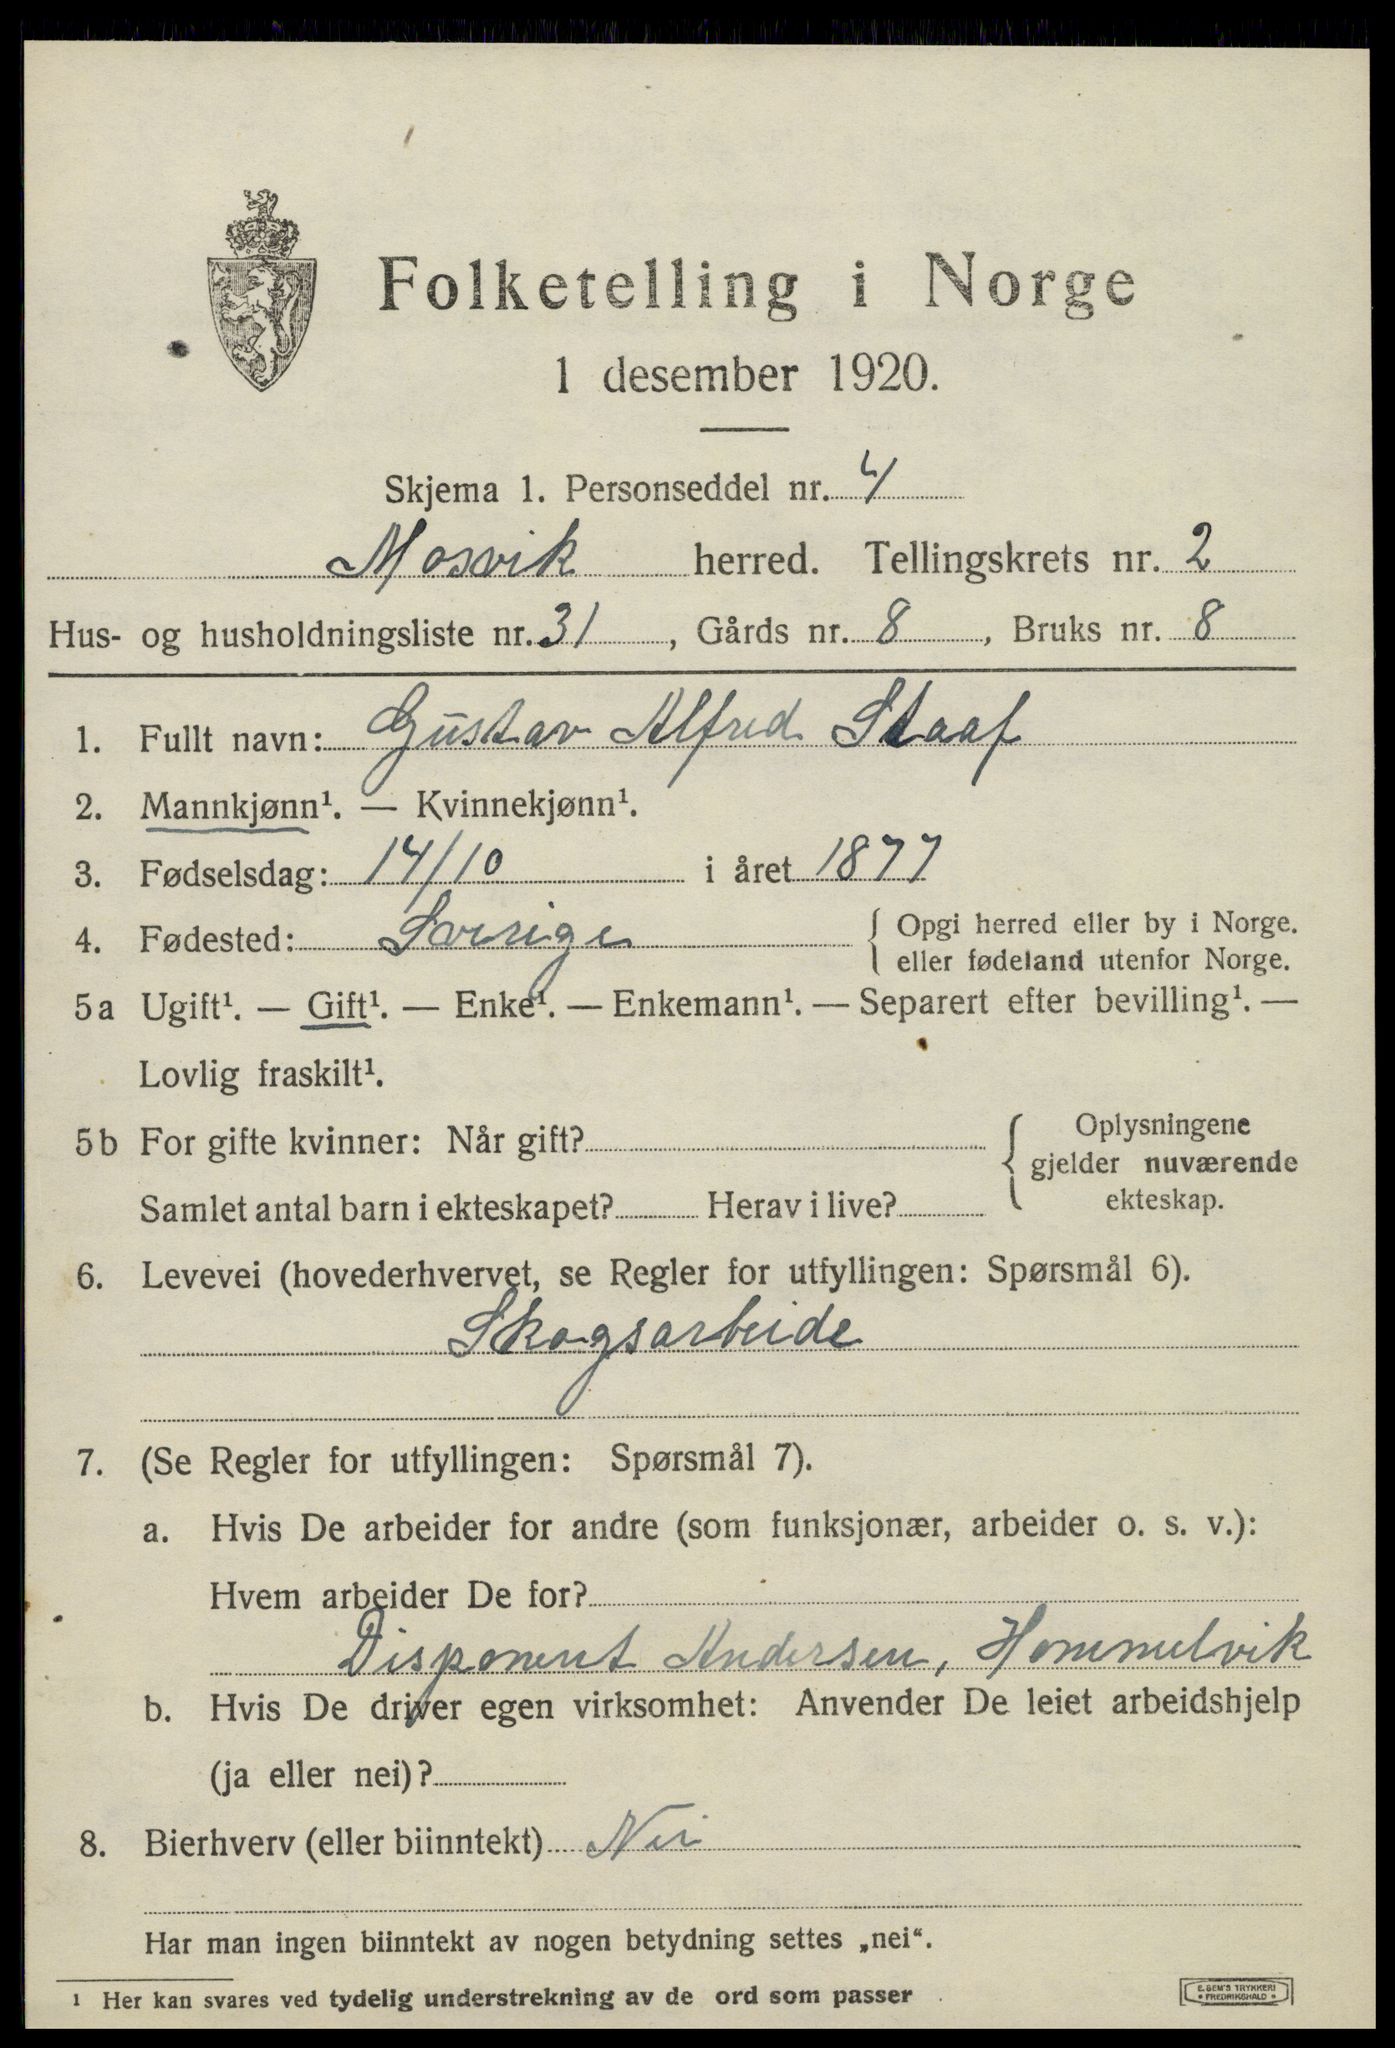 Folketelling i Norge
1 desember 1920.
Skjema 1. Personseddel nr. 4
Mosvik herred. Tellingskrets nr. 2
Hus- og husholdningsliste nr. 31, Gårds nr. 8, Bruks nr. 8
1. Fullt navn: Gustav Alfred Staaf
2. Mannkjønn¹. — Kvinnekjønn¹.
3. Fødselsdag: 14/10 i året 1877
4. Fødested: Sverige { Opgi herred eller by i Norge.
eller fødeland utenfor Norge.
5a Ugift¹. — Gift¹. — Enke¹. — Enkemann¹. — Separert efter bevilling¹. —
Lovlig fraskilt¹.
5b For gifte kvinner: Når gift? { Oplysningene
gjelder nuværende
Samlet antal barn i ekteskapet? Herav i live? ekteskap.
6. Levevei (hovederhvervet, se Regler for utfyllingen: Spørsmål 6).
Skogsarbeide
7. (Se Regler for utfyllingen: Spørsmål 7).
a. Hvis De arbeider for andre (som funksjonær, arbeider o. s. v.):
Hvem arbeider De for?
Disponent Andersen, Hommelvik
b. Hvis De driver egen virksomhet: Anvender De leiet arbeidshjelp
(ja eller nei)?
8. Bierhverv (eller biinntekt) Nei
Har man ingen biinntekt av nogen betydning settes „nei“.
1 Her kan svares ved tydelig understrekning av de ord som passer
E. SEM'S TRYKKERI
• FREDRIKSHALD •